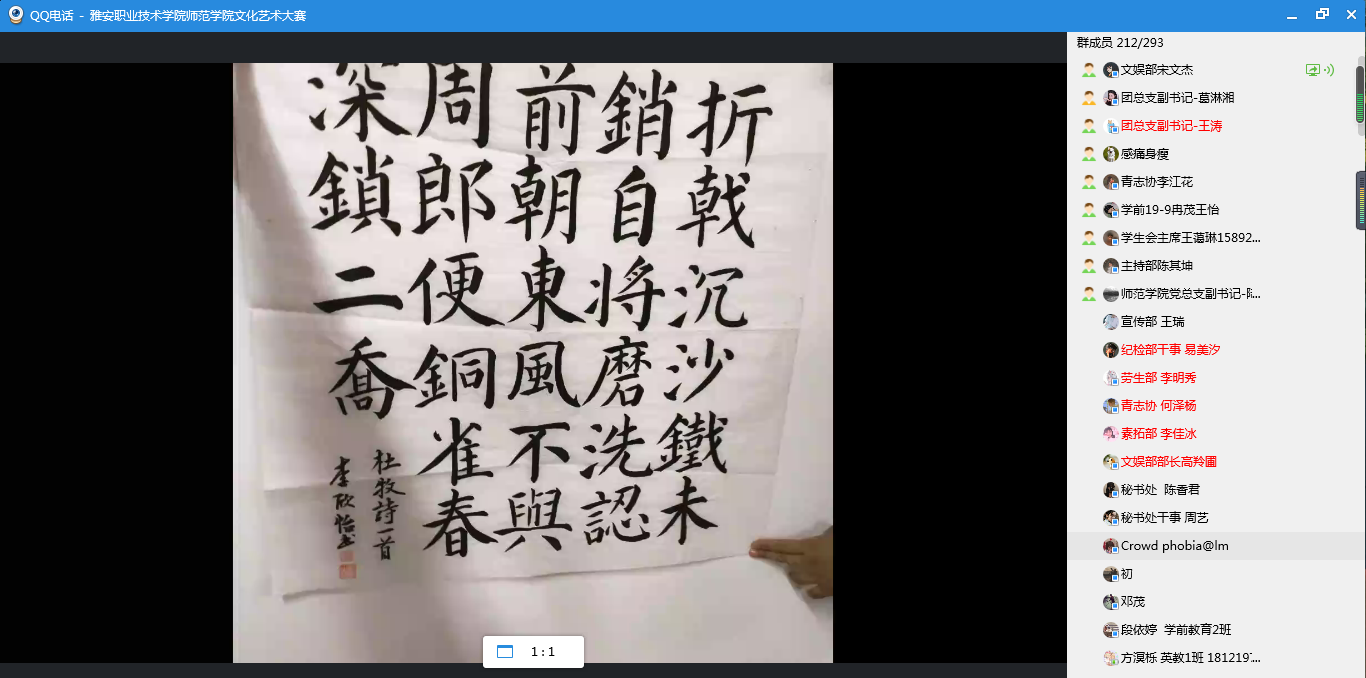 QQ电话 - 雅安职业技术学院师范学院文化艺术大赛
折戟沉沙鐵未
銷自將磨洗認
前朝東風不與
周郎便銅雀春
深鎖二喬
杜牧詩一首
李欣怡书
1:1
群成员 212/293
文娱部宋文杰
团总支副书记-葛淋湘
团总支副书记-王涛
感痛身瘦
青志协李江花
学前19-9冉茂王怡
学生会主席王蔼琳15892...
主持部陈其坤
师范学院党总支副书记-...
宣传部 王瑞
纪检部干事 易美汐
劳生部 李明秀
青志协 何泽杨
素拓部 李佳冰
文娱部部长高羚圃
秘书处 陈香君
秘书处干事 周艺
Crowd phobia@lm
初
邓茂
段依婷 学前教育2班
方溟栎 英教1班 181219...